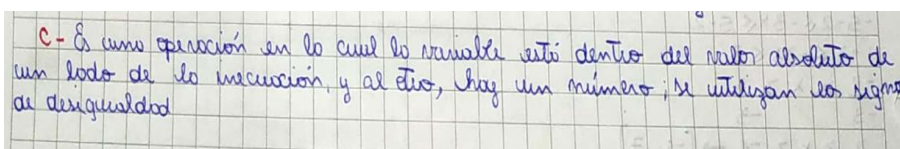 C- Es una operación en la cual la variable está dentro del valor absoluto de
un lado de la inecuación, y al otro, hay un número; se utilizan los signos
de desigualdad